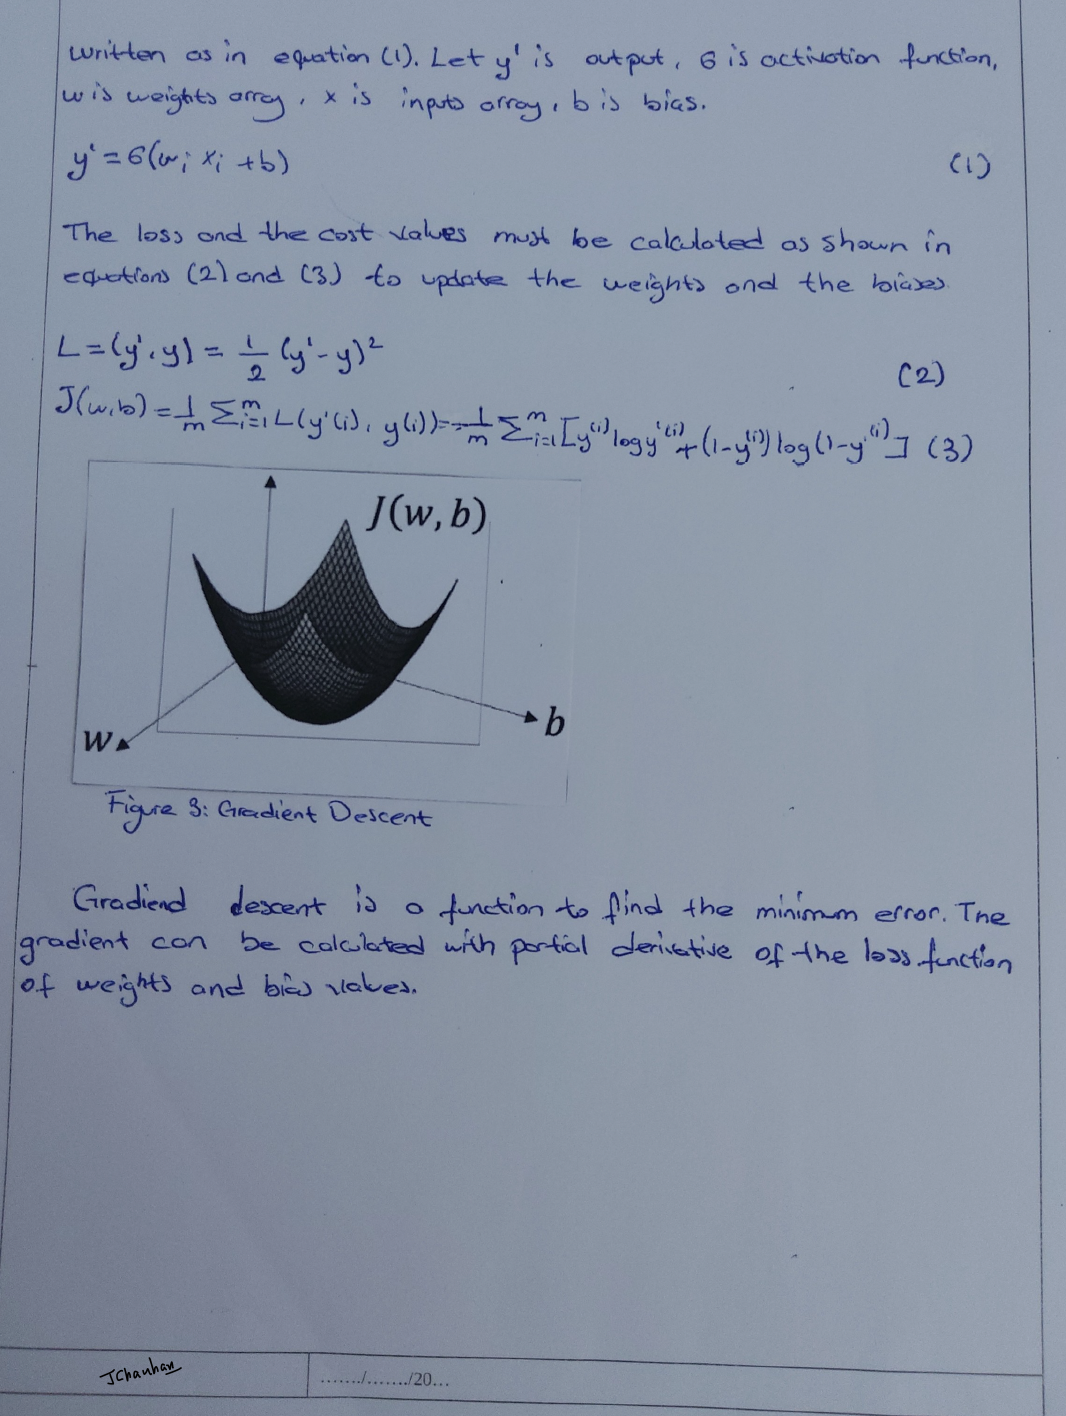 written as in equation (1). Let y' is output, 6 is activation function,
w is weights array, x is inputs array, b is bias.
y' = 6(wᵢ xᵢ + b) (1)
The loss and the cost values must be calculated as shown in
equations (2) and (3) to update the weights and the biases.
L = (y', y) = 1/2 (y' - y)² (2)
J(w,b) = 1/m Σᵢ₌₁ᵐ L(y'(i), y(i)) = -1/m Σᵢ₌₁ᵐ [y⁽ⁱ⁾ log y'⁽ⁱ⁾ + (1-y⁽ⁱ⁾) log(1-y'⁽ⁱ⁾] (3)
J(w, b)
w
b
Figure 3: Gradient Descent
Gradiend descent is a function to find the minimum error. The
gradient can be calculated with partial derivative of the loss function
of weights and bias values.
JChauhan
......./......./20...